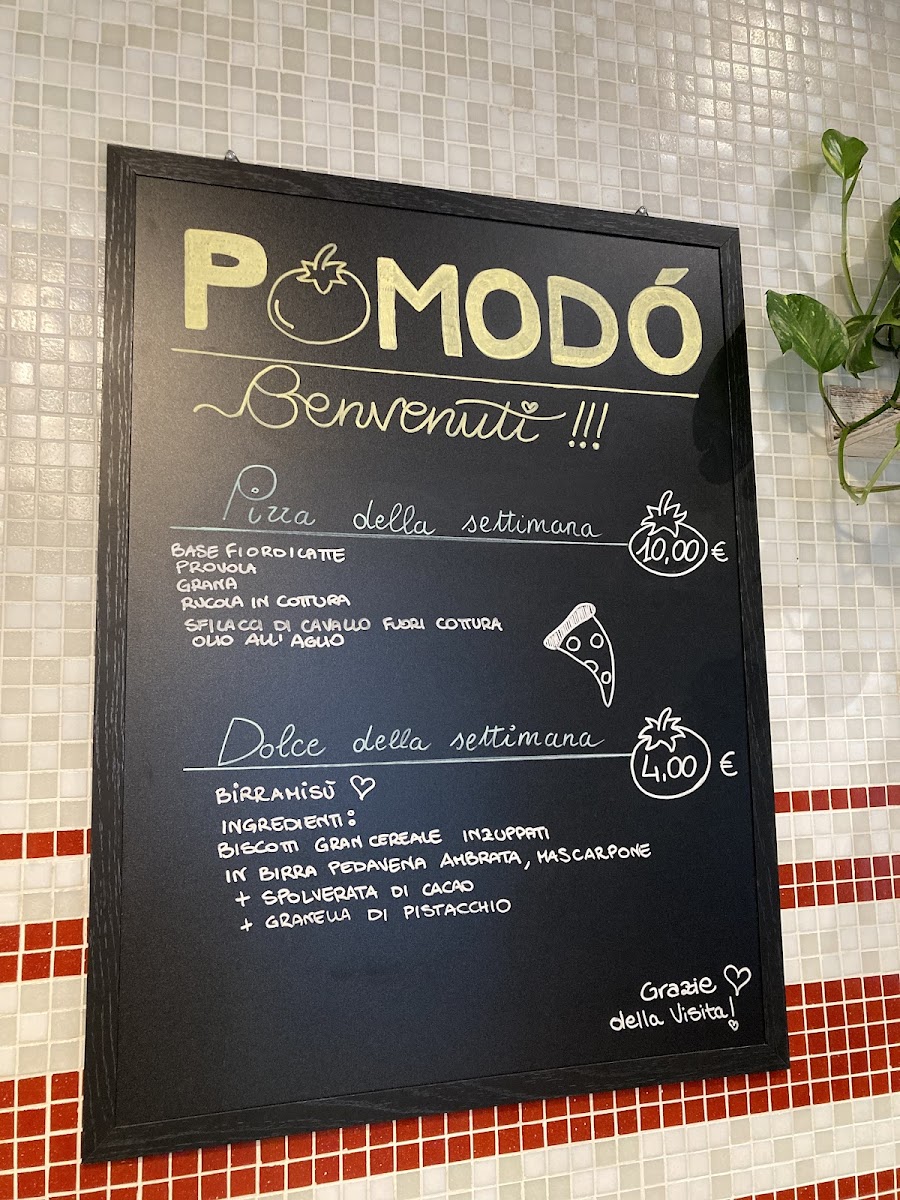 POMODÓ
Benvenuti !!!
Pizza della settimana
10,00 €
BASE FIORDILATTE
PROVOLA
GRANA
RUCOLA IN COTTURA
SFILACCI DI CAVALLO FUORI COTTURA
OLIO ALL'AGLIO
Dolce della settimana
4,00 €
BIRRAMISÙ
INGREDIENTI:
BISCOTTI GRAN CEREALE INZUPPATI
IN BIRRA PEDAVENA AMBRATA, MASCARPONE
+ SPOLVERATA DI CACAO
+ GRANELLA DI PISTACCHIO
Grazie
della Visita!